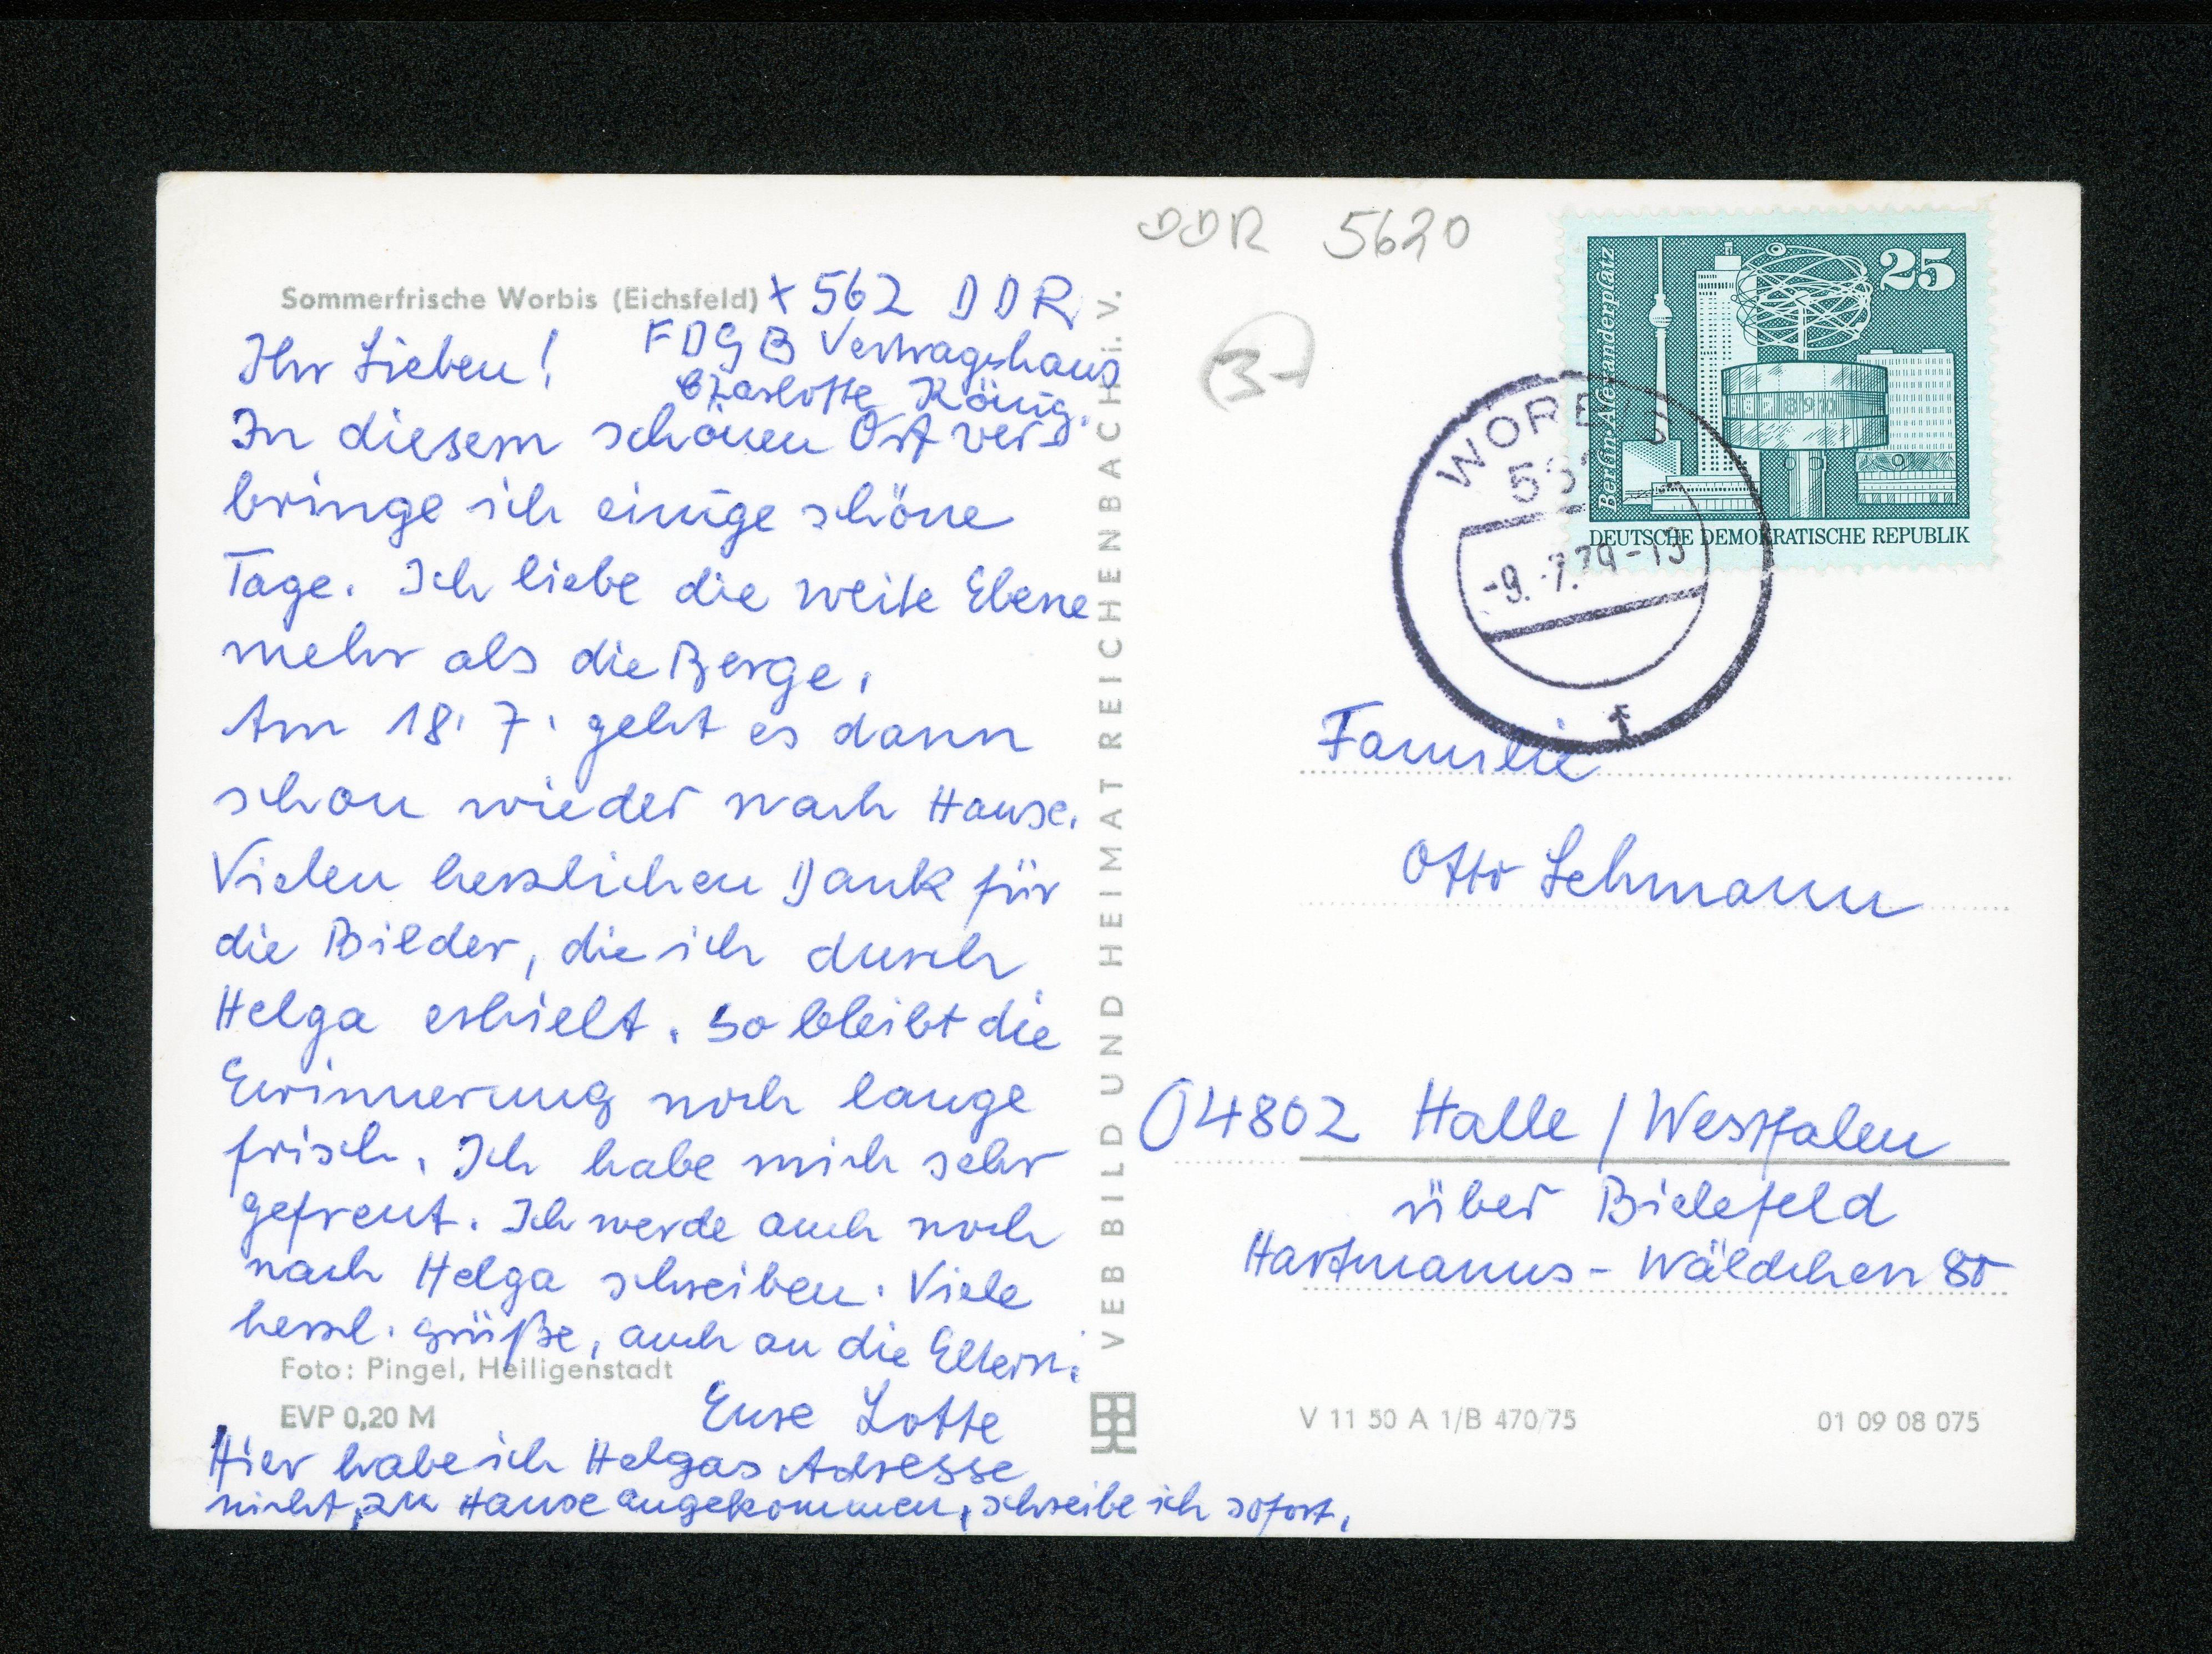 DDR 5620
3-
Sommerfrische Worbis (Eichsfeld) x 562 DDR
FDGB Vertragshaus
Charlotte König.
Ihr Lieben!
In diesem schönen Ort ver-
bringe ich einige schöne
Tage. Ich liebe die weite Ebene
mehr als die Berge.
Am 18. 7. geht es dann
schon wieder nach Hause.
Vielen herzlichen Dank für
die Bilder, die ich durch
Helga erhielt. So bleibt die
Erinnerung noch lange
frisch. Ich habe mich sehr
gefreut. Ich werde auch noch
nach Helga schreiben. Viele
herzl. Grüße, auch an die Eltern.
Foto: Pingel, Heiligenstadt
Eure Lotte
EVP 0,20 M
Hier habe ich Helgas Adresse
nicht, zu Hause angekommen, schreibe ich sofort.
VEB BILD UND HEIMAT REICHENBACH i. V.
25
Berlin-Alexanderplatz
DEUTSCHE DEMOKRATISCHE REPUBLIK
WORBIS
-9.-7.79-19
f
Familie
Otto Lehmann
O4802 Halle / Westfalen
über Bielefeld
Hartmanns-Wäldchen 80
V 11 50 A 1/B 470/75
01 09 08 075